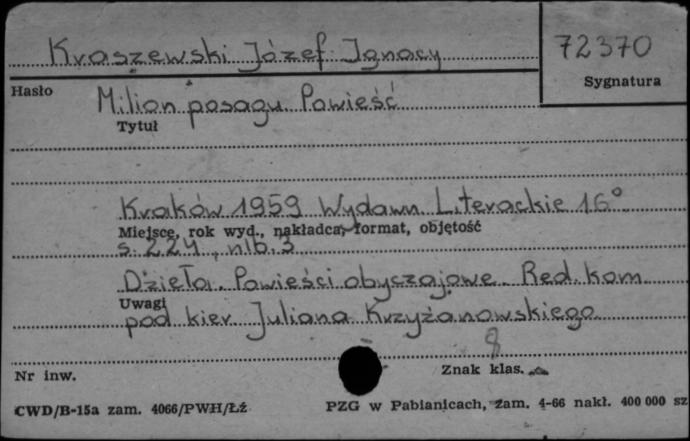 Kraszewski Józef Ignacy
72370
Sygnatura
Hasło
Milion posagu. Powieść
Tytuł
Kraków 1959 Wydawn. Literackie 16°
Miejsce, rok wyd., nakładca, format, objętość
s. 224, nlb. 3
Dzieła. Powieści obyczajowe. Red. kom.
Uwagi
pod kier. Juliana Krzyżanowskiego
8
Nr inw.
Znak klas.
CWD/B-15a zam. 4066/PWH/Łź
PZG w Pabianicach, zam. 4-66 nakł. 400 000 sz